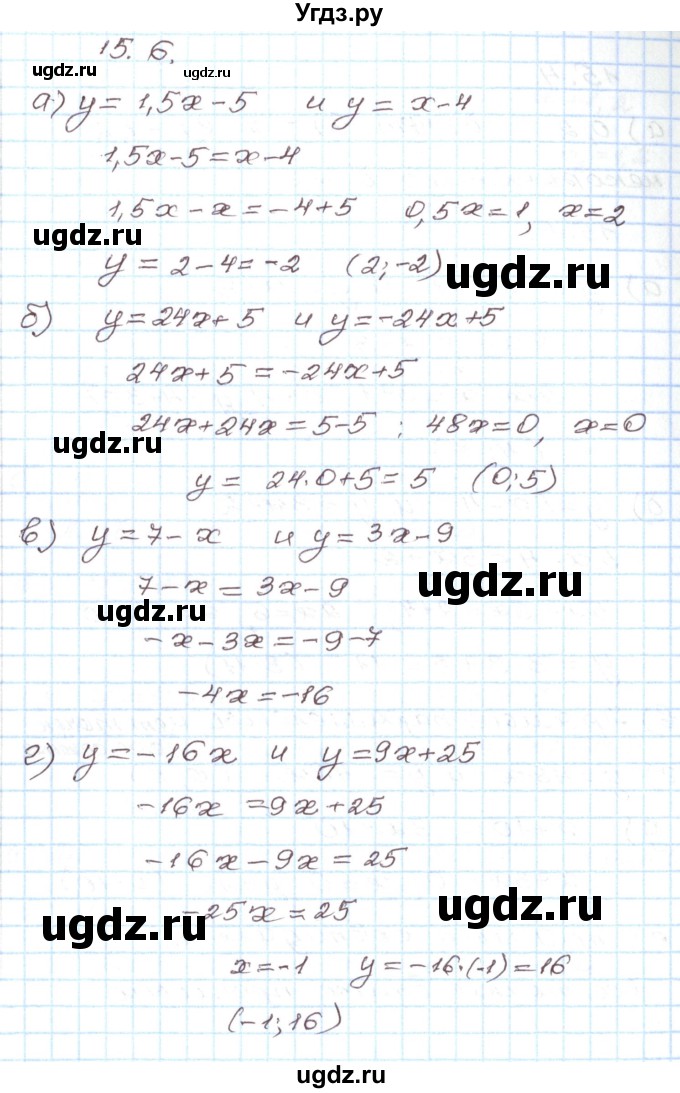 Угдз.ру
15. 6.
ugdz.ru
ugdz.ru
а) y = 1,5x - 5 и y = x - 4
1,5x - 5 = x - 4
1,5x - x = -4 + 5 0,5x = 1, x = 2
ugdz.ru
y = 2 - 4 = -2 (2; -2)
ugdz.ru
б) y = 24x + 5 и y = -24x + 5
24x + 5 = -24x + 5
24x + 24x = 5 - 5 ; 48x = 0, x = 0
ugdz.ru
y = 24·0 + 5 = 5 (0; 5)
в) y = 7 - x и y = 3x - 9
7 - x = 3x - 9
ugdz.ru
ugdz.ru
-x - 3x = -9 - 7
-4x = -16
г) y = -16x и y = 9x + 25
-16x = 9x + 25
-16x - 9x = 25
-25x = 25
ugdz.ru
ugdz.ru
x = -1 y = -16·(-1) = 16
(-1; 16)
ugdz.ru